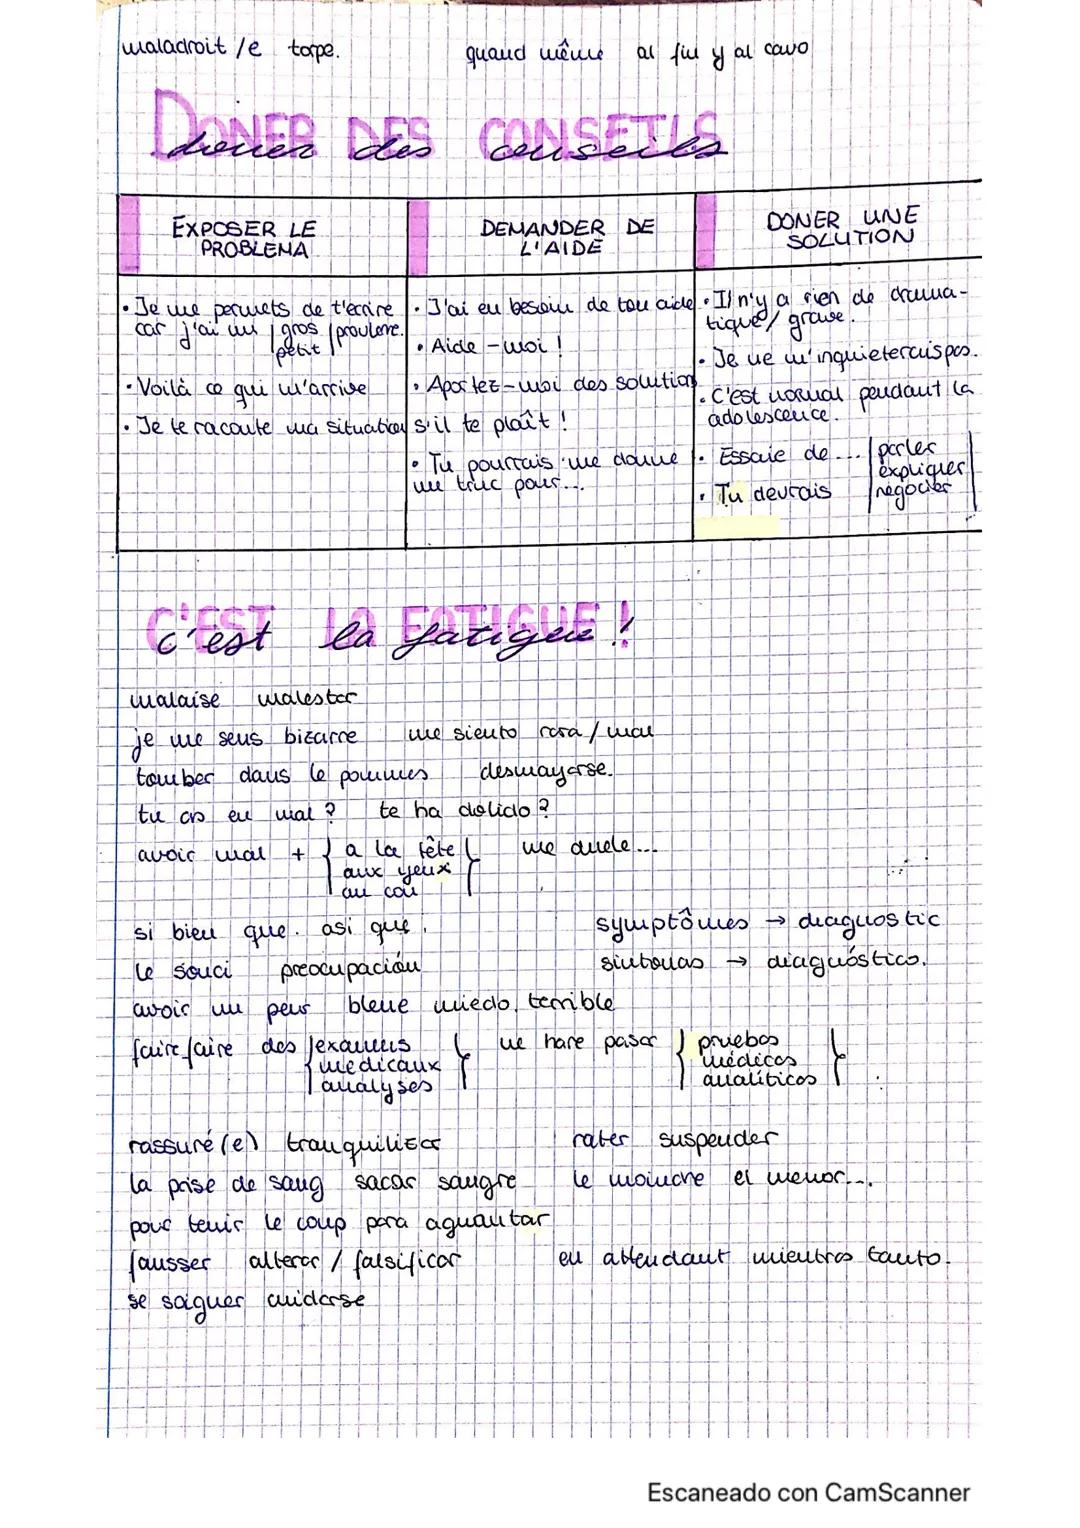 maladroit/e torpe. quand même al fin y al cavo
DONER DES CONSEILS
doner des conseils
EXPOSER LE PROBLEMA
DEMANDER DE L'AIDE
DONER UNE SOLUTION
• Je me permets de t'ecrire
car j'ai un gros / petit / probleme.
• Voilà ce qui m'arrive
• Je te raconte ma situation
• J'ai eu besoin de ton aide
• Aide-moi !
• Aportez-moi des solution
s'il te plaît !
• Tu pourrais me donne
un truc pour...
• Il n'y a rien de drama-
tique / grave.
• Je ne m'inquieterais pas.
• C'est normal pendant la
adolescence.
• Essaie de ... parler
expliquer
• Tu devrais négocier
C'EST LA FATIGUE !
c'est la fatigue !
malaise malestar
je me sens bizarre me siento rara / mal
tomber dans le pommes desmayarse.
tu as eu mal ? te ha dolido ?
avoir mal + { a la tête } me duele...
aux yeux
au cou
si bien que. asi que. symptômes → diagnostic
le souci preocupación sintomas → diagnóstico.
avoir un peur bleue miedo terrible
faire faire des { examens } me hare pasar { pruebas }
médicaux médicas
analyses analíticas
rassuré(e) tranquilizar rater suspender
la prise de sang sacar sangre le moindre el menor...
pour tenir le coup para aguantar
fausser alterar / falsificar en attendant mientras tanto.
se soigner cuidarse
Escaneado con CamScanner